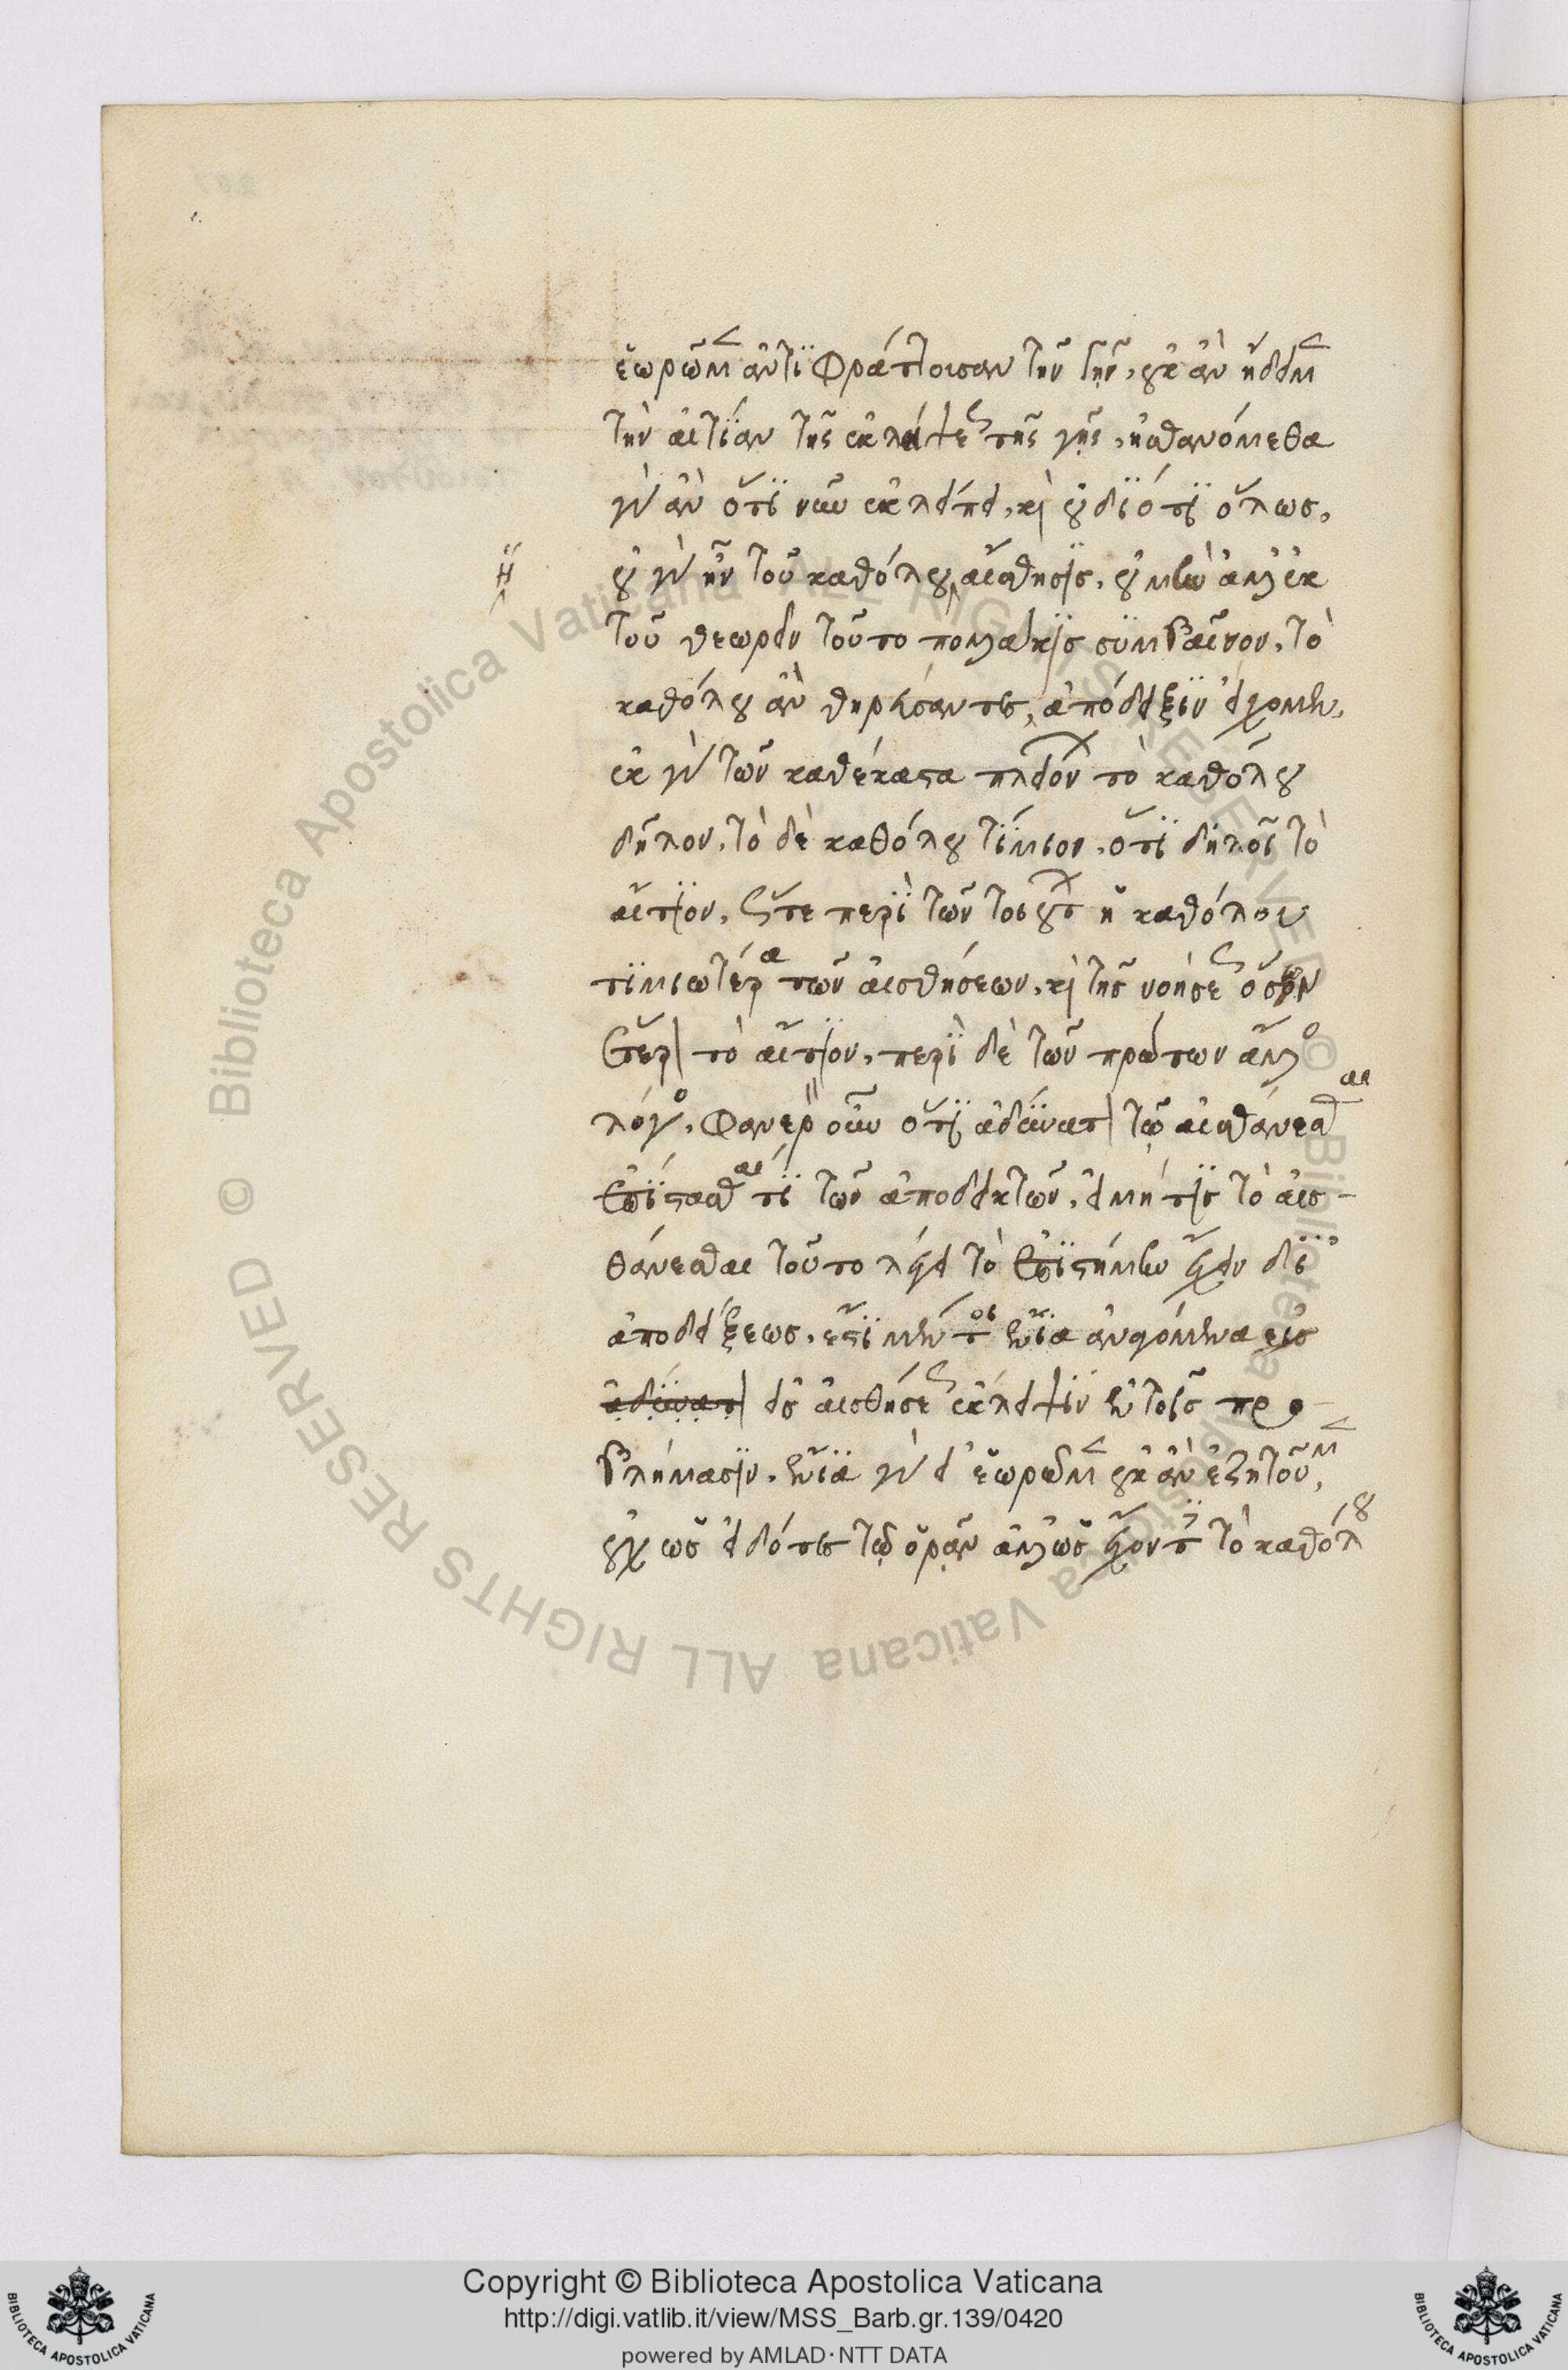 ἑωρῶμεν ἀντιφράττουσαν τὴν γῆν, οὐκ ἂν ᾔδειμεν
τὴν αἰτίαν τῆς ἐκλείψεως τῆς γῆς, ᾐσθανόμεθα
γὰρ ἂν ὅτι νῦν ἐκλείπει, καὶ οὐ διότι ὅλως,
ἡ
οὐ γὰρ ἦν τοῦ καθόλου αἴσθησις, οὐ μὴν ἀλλ' ἐκ
τοῦ θεωρεῖν τοῦτο πολλάκις συμβαῖνον, τὸ
καθόλου ἂν θηρεύσαντες, ἀπόδειξιν εἴχομεν,
ἐκ γὰρ τῶν καθέκαστα πλειόνων τὸ καθόλου
δῆλον, τὸ δὲ καθόλου τίμιον, ὅτι δηλοῖ τὸ
αἴτιον, ὥστε περὶ τῶν τοιούτων ἡ καθόλου
τιμιωτέρα τῶν αἰσθήσεων, καὶ τῆς νοήσεως ὅσων
ἕτερον τὸ αἴτιον, περὶ δὲ τῶν πρώτων ἄλλος
λόγος, φανερὸν οὖν ὅτι ἀδύνατον τῷ αἰσθάνεσθαι
ἐπίστασθαί τι τῶν ἀποδεικτῶν, εἰ μή τις τὸ αἰσ-
θάνεσθαι τοῦτο λέγει τὸ ἐπιστήμην ἔχειν δι'
ἀποδείξεως, ἔστι μέντοι ἔνια ἀναγόμενα εἰς
ἀδύνατον εἰς αἰσθήσεως ἔκλειψιν ἐν τοῖς προ-
βλήμασιν, ἔνια γὰρ εἰ ἑωρῶμεν οὐκ ἂν ἐζητοῦμεν,
οὐχ ὡς εἰδότες τῷ ὁρᾶν ἀλλ' ὡς ἔχοντες τὸ καθόλου
Copyright © Biblioteca Apostolica Vaticana
http://digi.vatlib.it/view/MSS_Barb.gr.139/0420
powered by AMLAD·NTT DATA